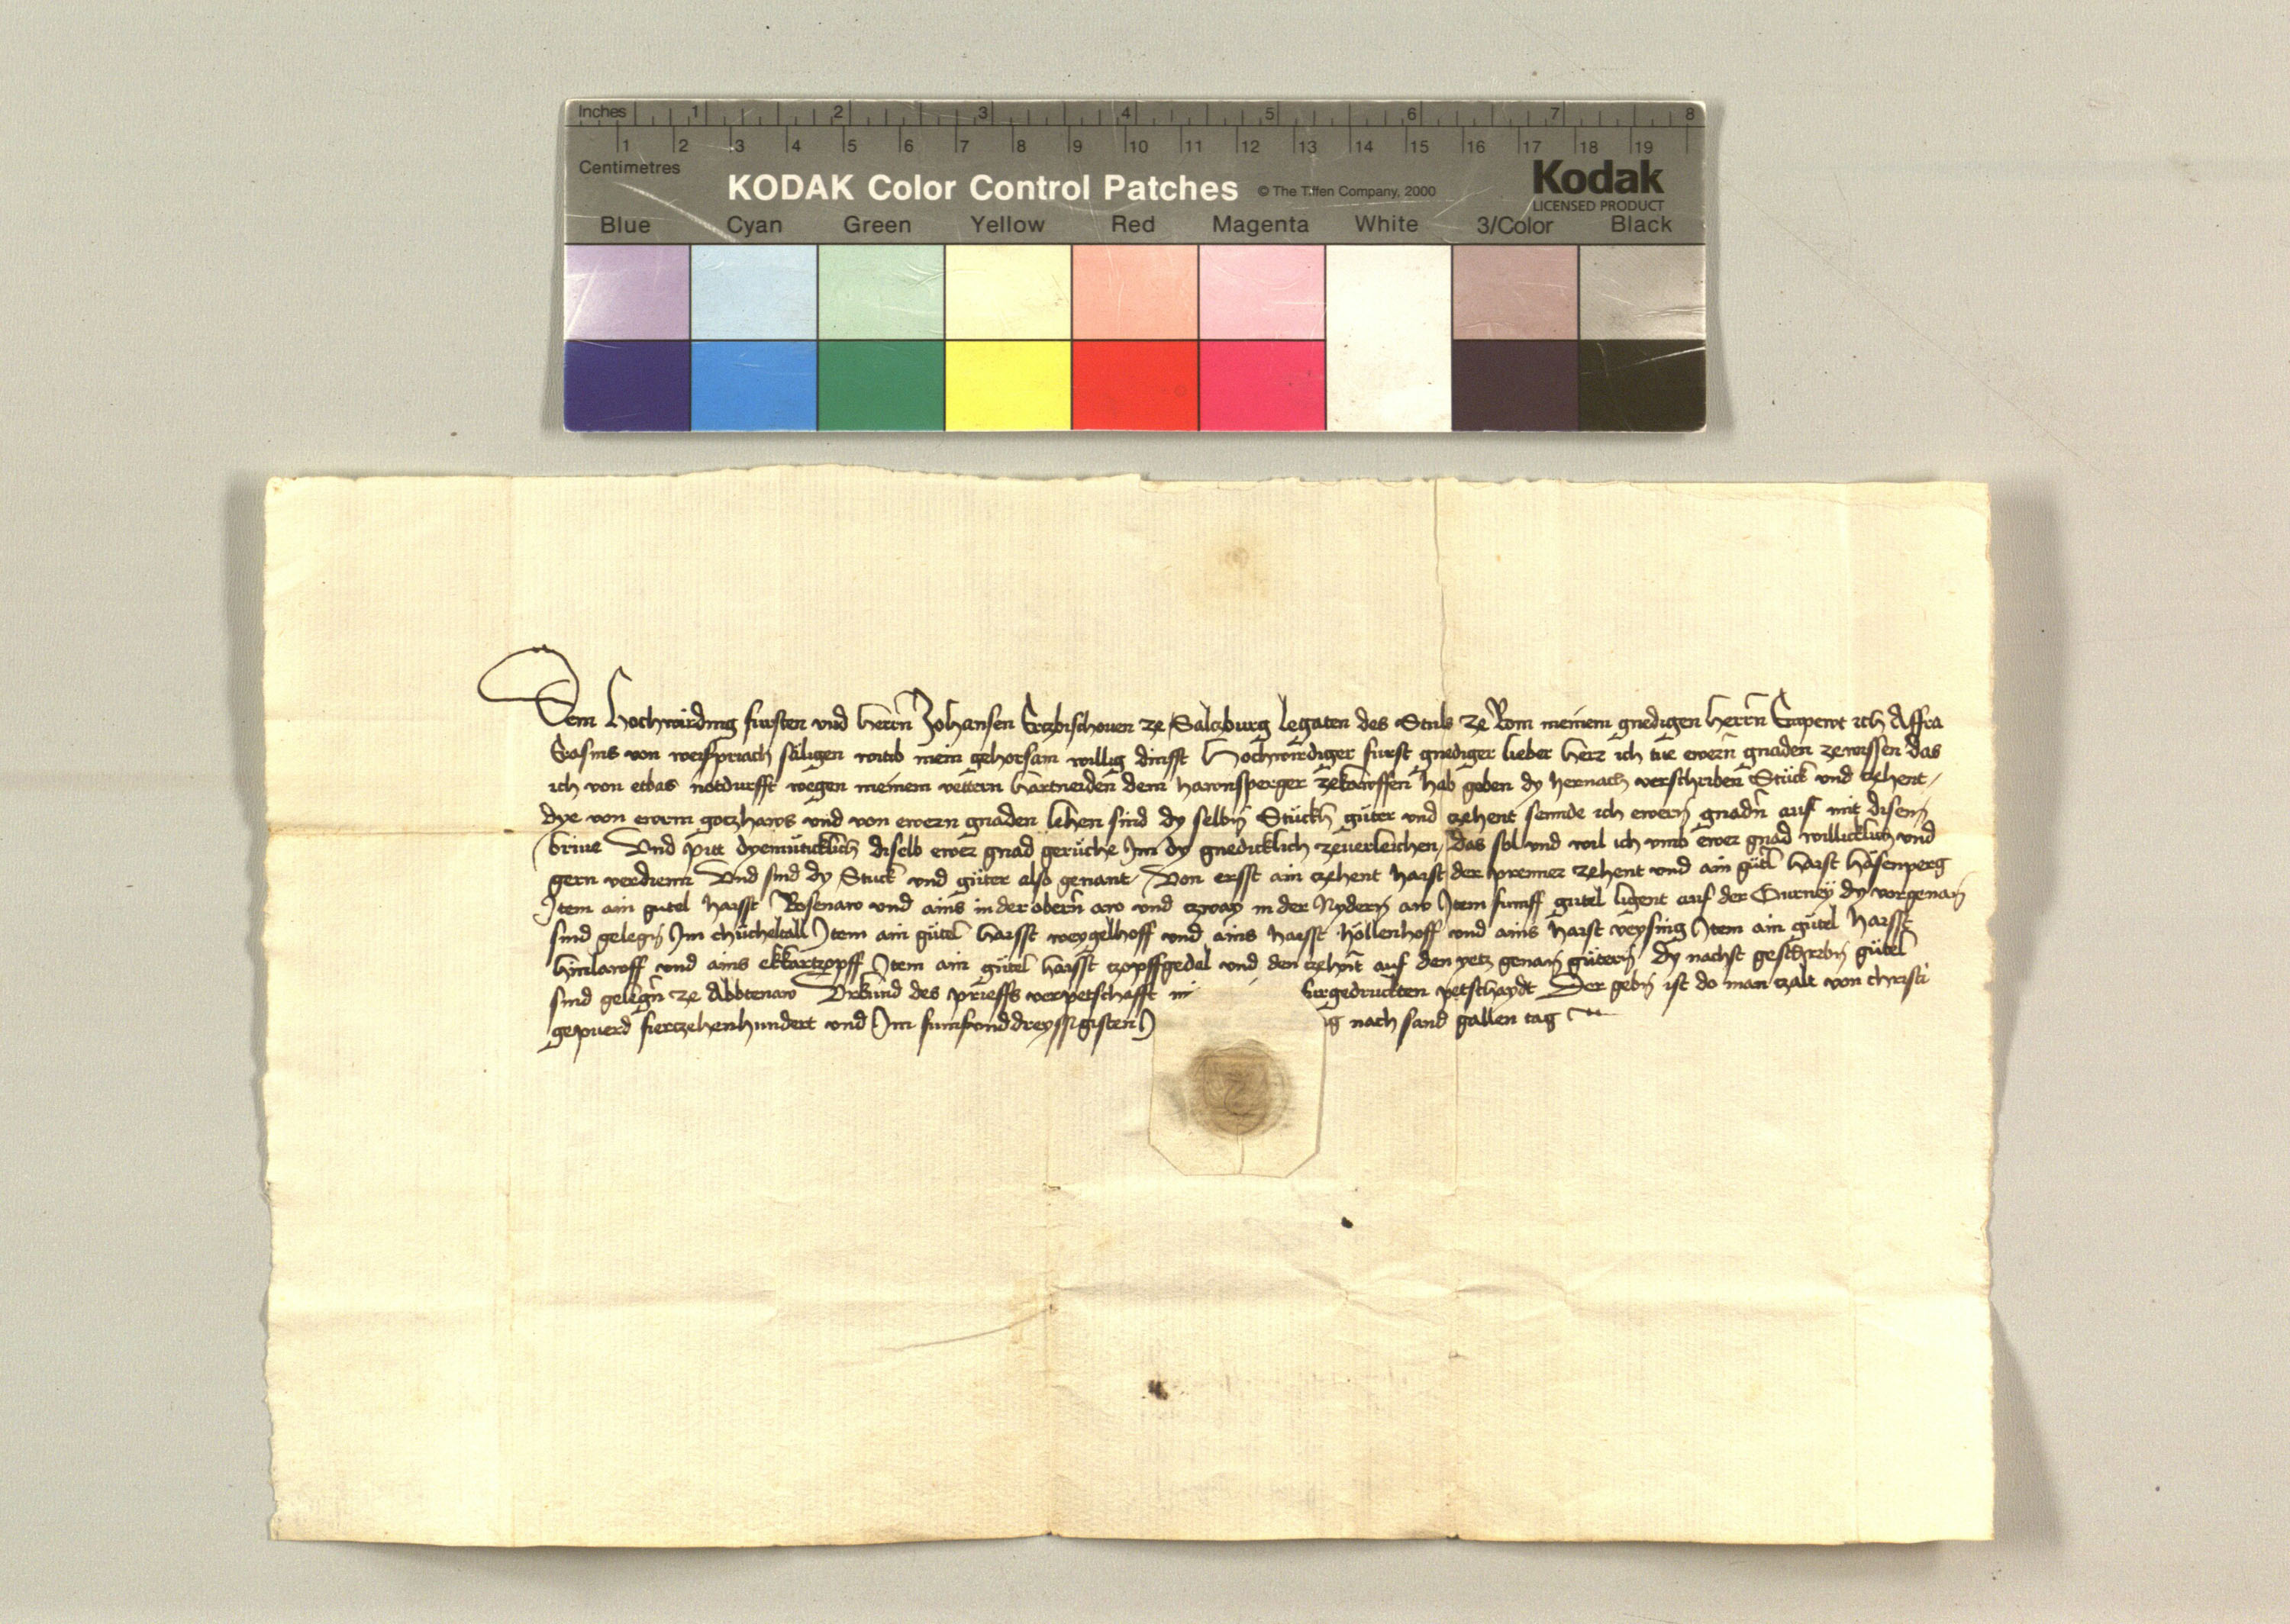 Inches 1 2 3 4 5 6 7 8
1 2 3 4 5 6 7 8 9 10 11 12 13 14 15 16 17 18 19
Centimetres
KODAK Color Control Patches © The Tiffen Company, 2000 Kodak
LICENSED PRODUCT
Blue Cyan Green Yellow Red Magenta White 3/Color Black
Dem hochwirding fursten vnd herrn Johansen Ertzbischouen ze Salczburg legaten des Stuls ze Rom meinem gnedigen herrn Enpewt ich Affra
Erasms von weispriach säligen witib mein gehorsam willig dinsst Hochwirdiger furst gnediger lieber herr ich tue ewern gnaden zewissen das
ich von etbas notdurfft wegen meinem vettern hartneiden dem hawnsperger zekawffen hab geben dy hernach verschriben Stück vnd zehent
dye von ewrm goczhaws vnd von ewern gnaden lehen sind dy selbn Stückh güter vnd zehent sennde ich ewern gnadn auf mit disem
briue Vnd pitt dyemüticklich diselb ewer gnad gerüche Im dy gnedicklich zeuerleichen, das sol vnd wil ich vmb ewer gnad willicklich vnd
gern verdienn Vnd sind dy Stuck vnd güter also genant Von ersst ain zehent haist der prenner zehent vnd ain gütl haist häsenperg
Item ain gutel haisst Rosenaw vnd ains in der obern aw vnd czway in der Nydern aw Item fumff gutel ligent auf der Gurney dy vorgenan
sind gelegn Im chücheltall Item ain gütel haisst weygelhoff vnd ains haisst höllenhoff vnd ains haist veysing Item ain gütel haisst
hinlaroff vnd ains ekkartzopff Item ain gütel haisst czopffgedel vnd den zehnt auf den yetz genan gütern dy nachst geschrebn gütel
sind gelegn ze Abbtenaw Vrkund des prieffs verpetschafft mi furgedruckten petschaydt Der gebn ist do man czalt von christi
gepuerd fierczehenhundert vnd Im fumfvnddreyssigisten J g nach sand gallen tag